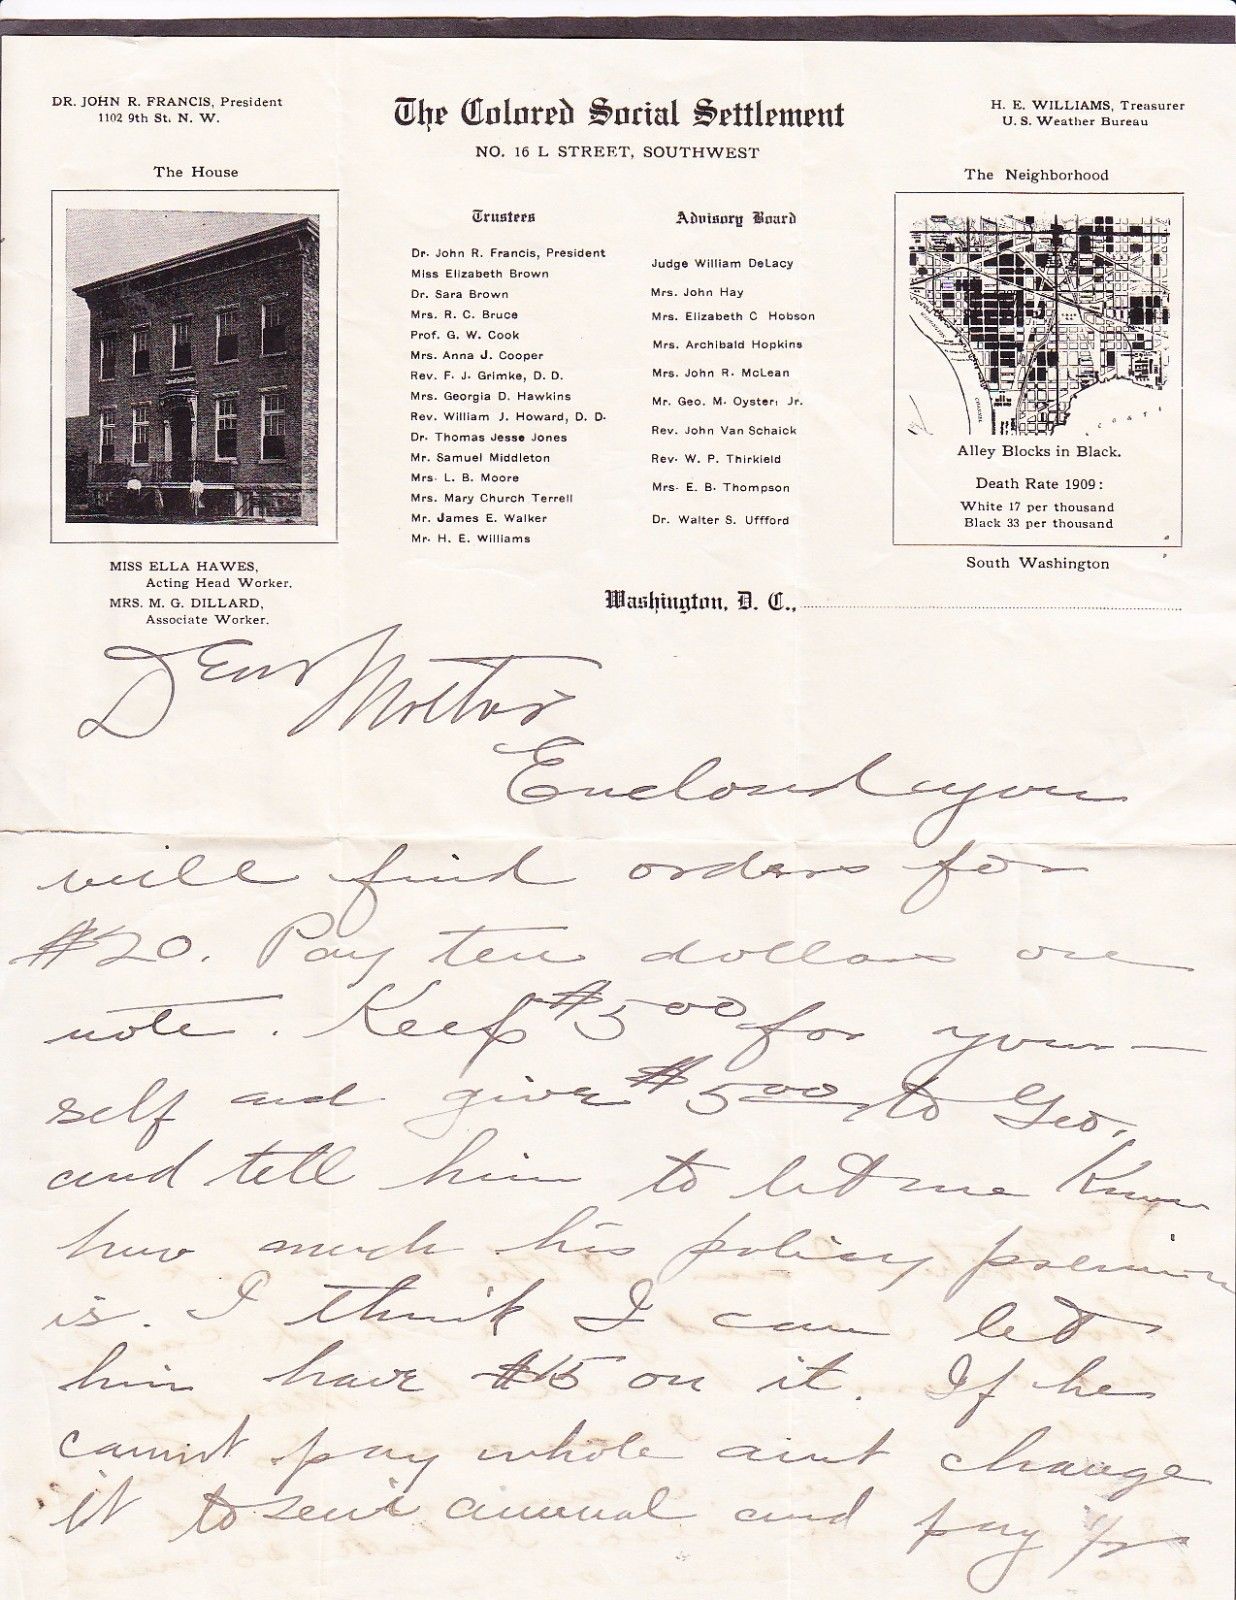 DR. JOHN R. FRANCIS, President
1102 9th St. N. W.
The Colored Social Settlement
NO. 16 L STREET, SOUTHWEST
H. E. WILLIAMS, Treasurer
U. S. Weather Bureau
The House
The Neighborhood
Trustees
Dr. John R. Francis, President
Miss Elizabeth Brown
Dr. Sara Brown
Mrs. R. C. Bruce
Prof. G. W. Cook
Mrs. Anna J. Cooper
Rev. F. J. Grimke, D. D.
Mrs. Georgia D. Hawkins
Rev. William J. Howard, D. D.
Dr. Thomas Jesse Jones
Mr. Samuel Middleton
Mrs. L. B. Moore
Mrs. Mary Church Terrell
Mr. James E. Walker
Mr. H. E. Williams
Advisory Board
Judge William DeLacy
Mrs. John Hay
Mrs. Elizabeth C Hobson
Mrs. Archibald Hopkins
Mrs. John R. McLean
Mr. Geo. M. Oyster, Jr.
Rev. John Van Schaick
Rev. W. P. Thirkield
Mrs. E. B. Thompson
Dr. Walter S. Uffford
Alley Blocks in Black.
Death Rate 1909:
White 17 per thousand
Black 33 per thousand
South Washington
MISS ELLA HAWES,
Acting Head Worker.
MRS. M. G. DILLARD,
Associate Worker.
Washington, D. C.,
Dear Mother
Enclosed you
will find orders for
$20. Pay ten dollars one
note. Keep $5 00 for your-
self and give $5 00 to Geo.
and tell him to let me know
how much his policy premium
is. I think I can let
him have $15 on it. If he
cannot pay whole amt change
it to semi annual and pay